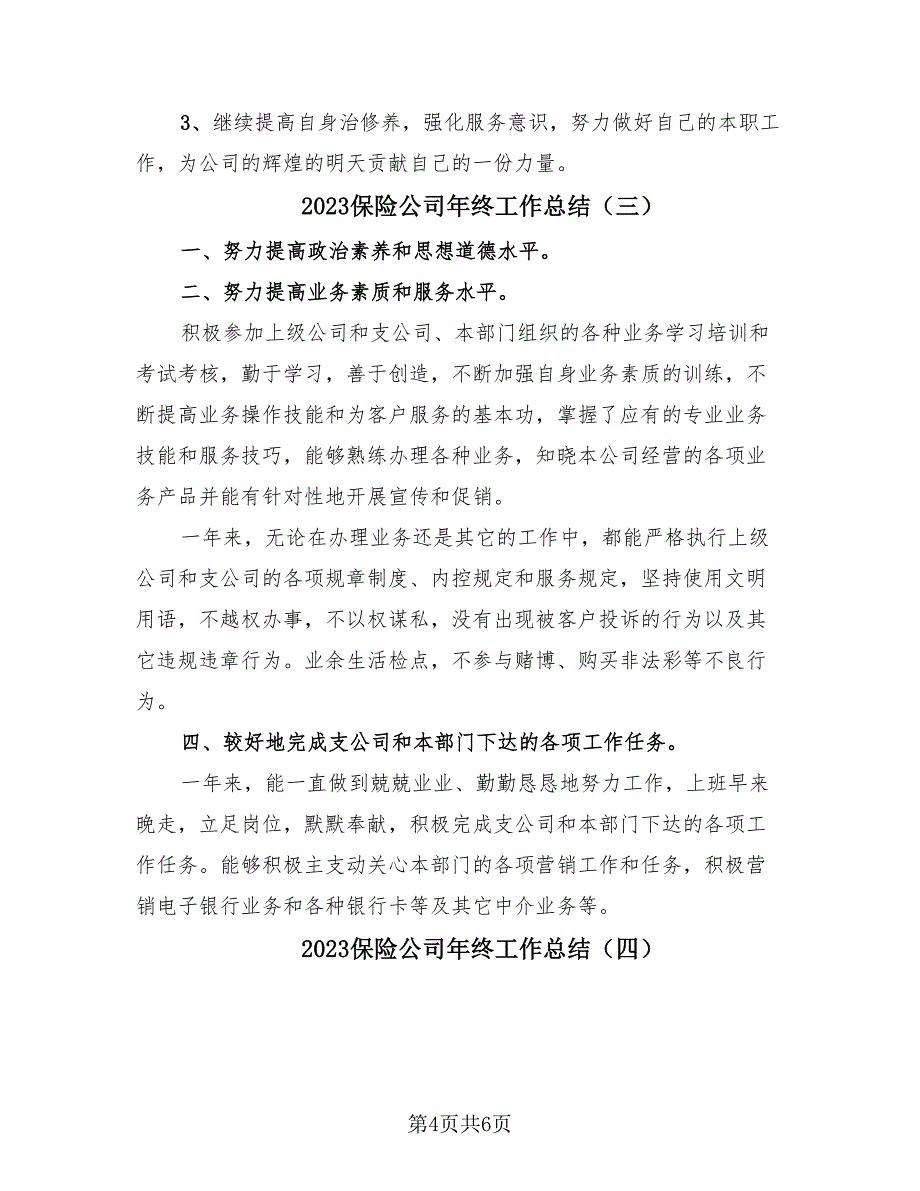 3、继续提高自身治修养，强化服务意识，努力做好自己的本职工
作，为公司的辉煌的明天贡献自己的一份力量。
2023保险公司年终工作总结（三）
一、努力提高政治素养和思想道德水平。
二、努力提高业务素质和服务水平。
积极参加上级公司和支公司、本部门组织的各种业务学习培训和
考试考核，勤于学习，善于创造，不断加强自身业务素质的训练，不
断提高业务操作技能和为客户服务的基本功，掌握了应有的专业业务
技能和服务技巧，能够熟练办理各种业务，知晓本公司经营的各项业
务产品并能有针对性地开展宣传和促销。
一年来，无论在办理业务还是其它的工作中，都能严格执行上级
公司和支公司的各项规章制度、内控规定和服务规定，坚持使用文明
用语，不越权办事，不以权谋私，没有出现被客户投诉的行为以及其
它违规违章行为。业余生活检点，不参与赌博、购买非法彩等不良行
为。
四、较好地完成支公司和本部门下达的各项工作任务。
一年来，能一直做到兢兢业业、勤勤恳恳地努力工作，上班早来
晚走，立足岗位，默默奉献，积极完成支公司和本部门下达的各项工
作任务。能够积极主支动关心本部门的各项营销工作和任务，积极营
销电子银行业务和各种银行卡等及其它中介业务等。
2023保险公司年终工作总结（四）
第4页共6页